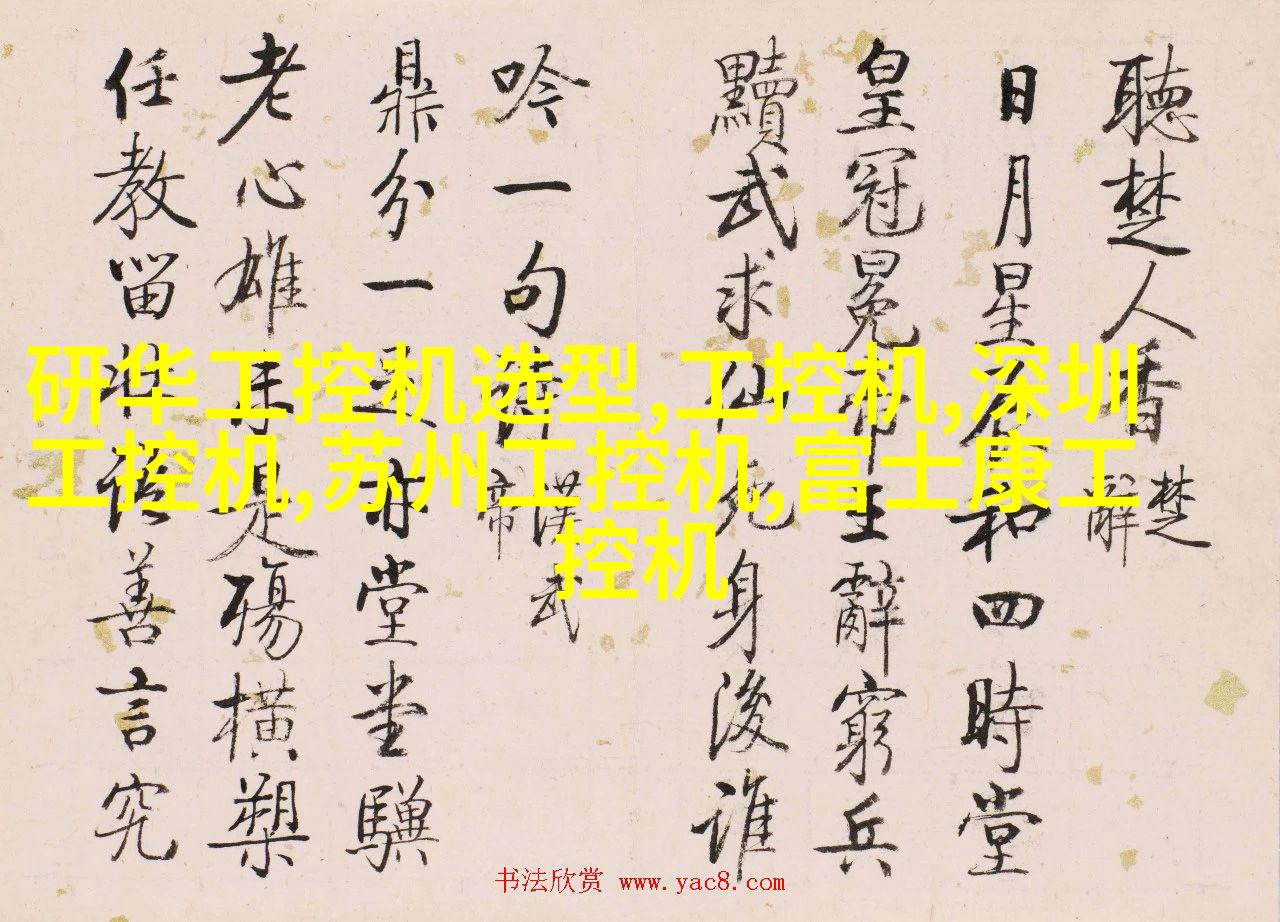 聽楚人香 楚辭
日月星辰和四時堂
皇冠冕帝王辭窮兵
黷武求仙死身後誰
吟一句詩 漢武帝
鼎分一堂堂驥
老心雄是殤橫槊
任教留善言究
研华工控机选型,工控机,深圳
工控机,苏州工控机,富士康工
控机
书法欣赏 www.yac8.com